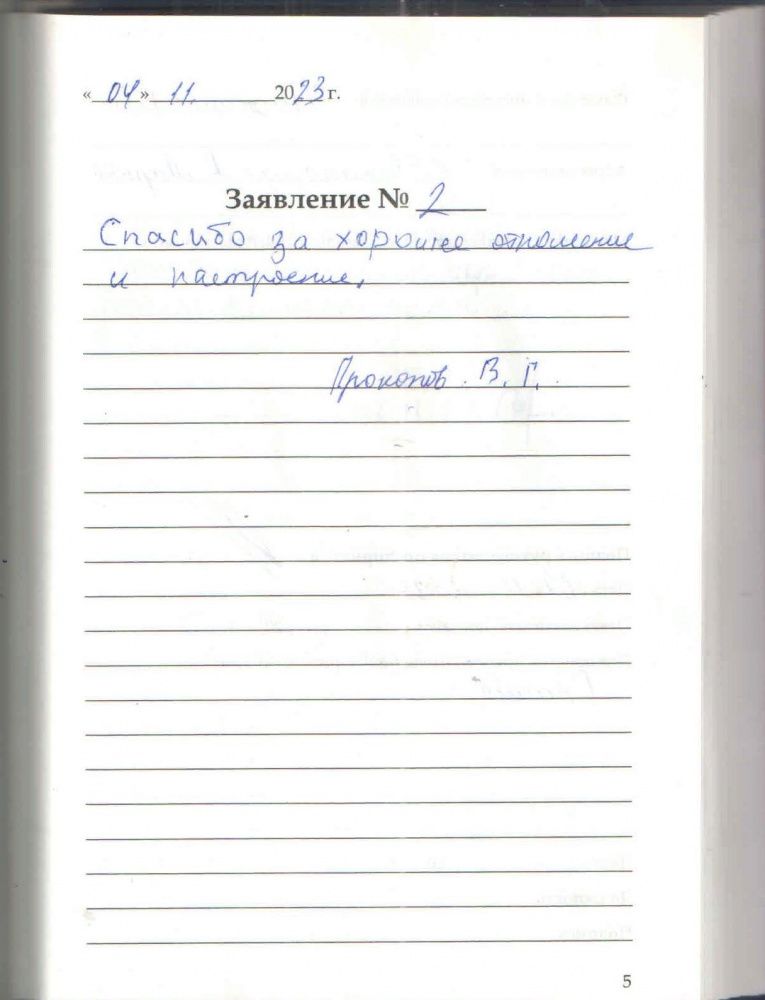 « 04 » 11. 2023 г.
Заявление № 2
Спасибо за хорошее отношение
и настроение.
Прокопов. В. Г.
5